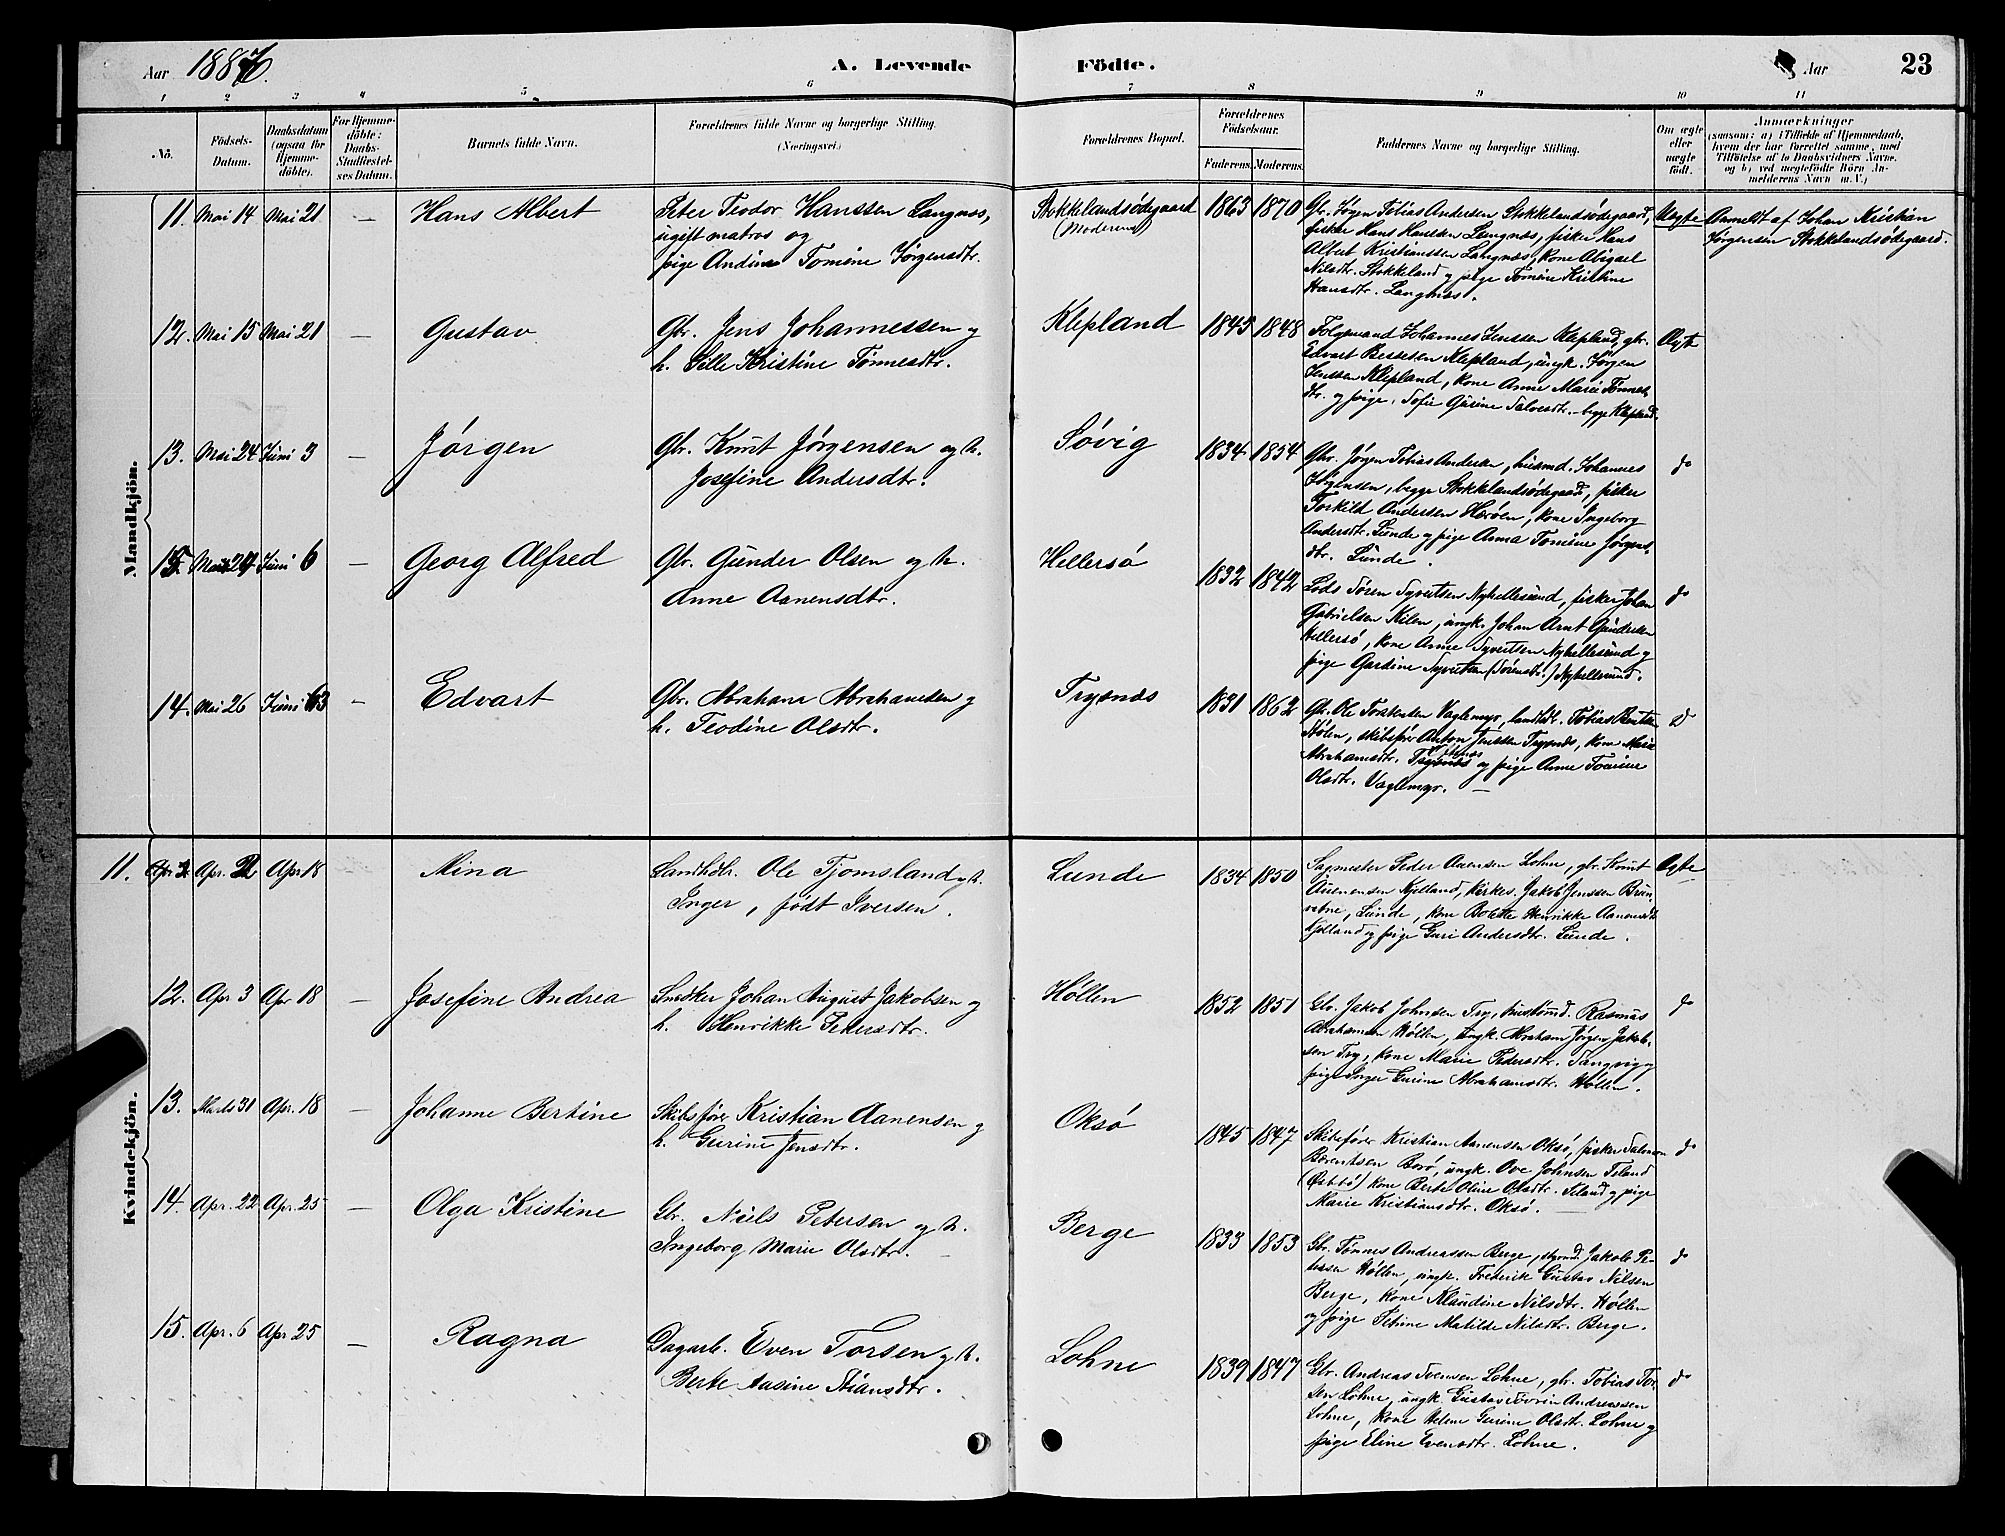 Aar 1886.
A. Levende Födte.
Aar 23
1 2 3 4 5 6 7 8 9 10 11
No.
Födsels-Datum.
Daabsdatum (ogsaa for Hjemme-döbte).
For Hjemme-döbte: Daabs-Stadfæstel-ses Datum.
Barnets fulde Navn.
Forældrenes fulde Navne og borgerlige Stilling.
(Næringsvei.)
Forældrenes Bopæl.
Forældrenes Födselsaar.
Faderens. Moderens.
Faddernes Navne og borgerlige Stilling.
Om ægte eller uægte födt.
Anmærkninger
(saasom: a) i Tilfælde af Hjemmedaab,
hvem der har forrettet samme, med
Tilföielse af to Daabsvidners Navne.
og b) ved uægtefödte Börn An-
melderens Navn m. V.)
Mandkjön.
11. Mai 14 Mai 21 — Hans Albert
Peter Teodor Hanssen Langnæs,
ugift matros og
pige Andine Tomine Jørgensdtr.
Stokklandsødegaard
(Moderens)
1863 1870
Gbr. Jørgen Tobias Andersen Stokklandsødegaard,
fisker Hans Hansen Langnæs, fisker Hans
Albert Kristianssen Langnæs, kone Abigael
Nilsdtr. Stokkeland og pige Tomine Kristine
Hansdtr. Langnæs.
Uægte
Anmeldt af Johan Kristian
Jørgensen Stokklandsødegaard.
12. Mai 15 Mai 21 — Gustav
Gbr. Jens Johannessen og
h. Sille Kristine Tønnesdtr.
Klepland 1845 1848
Folgemand Johannes Jenssen Klepland, gbr.
Edvart Bessesen Klepland, ungk. Jørgen
Jenssen Klepland, kone Anne Marie Tønnes
dtr. og pige Sofie Gurine Salvesdtr. begge Klepland.
Ægte
13. Mai 24 Juni 3 — Jørgen
Gbr. Knut Jørgensen og h.
Josefine Andersdtr.
Søvig 1834 1854
Gbr. Jørgen Tobias Andersen, husmd. Johannes
Jørgensen, begge Stokklandsødegaard, fisker
Torkild Andersen Herøen, kone Ingeborg
Andersdtr. Lunde og pige Anna Tomine Jørgens-
dtr. Lunde.
do
15. Mai 29 Juni 6 — Georg Alfred
Gbr. Gunder Olsen og h.
Anne Aanensdtr.
Hellersø 1832 1842
Lods Søren Syvertsen Nyhellesund, fisker Johan
Gabrielsen Kilen, ungk. Johan Arnt Gundersen
Hellersø, kone Anne Syvertsen Nyhellesund og
pige Gardine Syvertsen (Sørensdtr.) Nyhellesund.
do
14. Mai 26 Juni 13 — Edvart
Gbr. Abraham Abrahamsen og
h. Teodine Olsdtr.
Trysnæs 1831 1862
Gbr. Ole Torstensen Vaglemyr, landhdlr. Tobias Bentsen
Stølen, skibsfører Anton Jenssen Trysnæs, kone Marie
Abrahamsdtr. og pige Anne Tomine
Olsdtr. Vaglemyr. —
do
Kvindekjön.
11. Apr. 2 Apr 18 — Mina
Landhdlr. Ole Tjomsland og h.
Inger, født Iversen.
Lunde 1834 1850
Sagmester Peder Aanensen Lohne, gbr. Knut
Aanensen Kjelland, kirkes. Jakob Jenssen Brun-
vatne, Lunde, kone Bolette Henrikke Aanensdtr.
Kjelland og pige Guri Andersdtr. Lunde.
Ægte
12. Apr 3 Apr 18 — Josefine Andrea
Snedker Johan August Jakobsen og
h. Henrikke Petersdtr.
Høllen 1852 1851
Gbr. Jakob Johnsen Try, husmd. Rasmus
Abrahamsen Høllen, ungk. Abraham Jørgen Jakob-
sen Try, kone Marie Pedersdtr. Tangvig og
pige Inger Gurine Abrahamsdtr. Høllen.
do
13. Marts 31 Apr. 18 — Johanne Bertine
Skibsfører Kristian Aanensen og
h. Gurine Jensdtr.
Oksø 1845 1847
Skibsfører Kristian Aanensen Oksø, fisker Salmon
Berentsen Borø, ungk. Ove Johnsen Teland
kone Berte Oline Olsdtr. Teland og pige
Marie Kristiansdtr. Oksø.
do
14. Apr. 22 Apr. 25 — Olga Kristine
Gbr. Niels Petersen og h.
Ingeborg Marie Olsdtr. —
Berge 1833 1853
Gbr. Tønnes Andreassen Berge, styrmd. Jakob Pe-
tersen Høllen, ungk. Frederik Gustav Nilsen
Berge, kone Klaudine Nilsdtr. Høllen
og pige Petrine Matilde Nilsdtr. Berge.
do
15. Apr. 6 Apr 25 — Ragna
Dagarb. Even Torsen og h.
Berte Aasine Stiansdtr.
Lohne 1839 1847
Gbr. Andreas Svensen Lohne, gbr. Tobias Tor-
sen Lohne, ungk. Gustav Severin Andreassen
Lohne, kone Helene Gurine Olsdtr. Lohne og
pige Eline Evensdtr. Lohne.
do